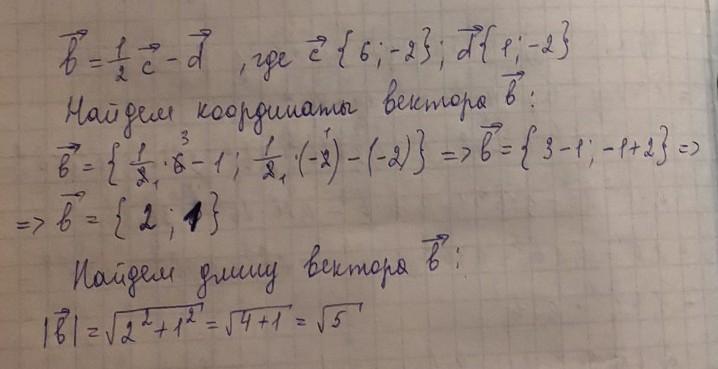 b⃗ = 1/2 c⃗ - d⃗ , где c⃗ {6; -2}; d⃗ {1; -2}
Найдем координаты вектора b⃗:
b⃗ = {1/2 · 6 - 1; 1/2 · (-2) - (-2)} => b⃗ = {3-1; -1+2} =>
=> b⃗ = {2; 1}
Найдем длину вектора b⃗:
|b⃗| = √(2² + 1²) = √(4+1) = √5